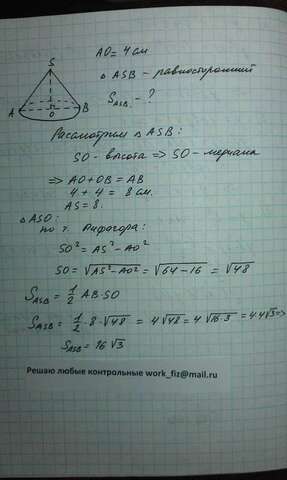 S
A
B
O
AO = 4 см
△ ASB – равносторонний
S_ASB – ?
Рассмотрим △ ASB:
SO – высота ⇒ SO – медиана
⇒ AO + OB = AB
4 + 4 = 8 см.
AS = 8.
△ ASO:
по т. Пифагора:
SO² = AS² – AO²
SO = √AS² – AO² = √64 – 16 = √48
S_ASB = 1/2 AB · SO
S_ASB = 1/2 · 8 · √48 = 4√48 = 4√16·3 = 4·4√3 ⇒
S_ASB = 16√3
Решаю любые контрольные work_fiz@mail.ru